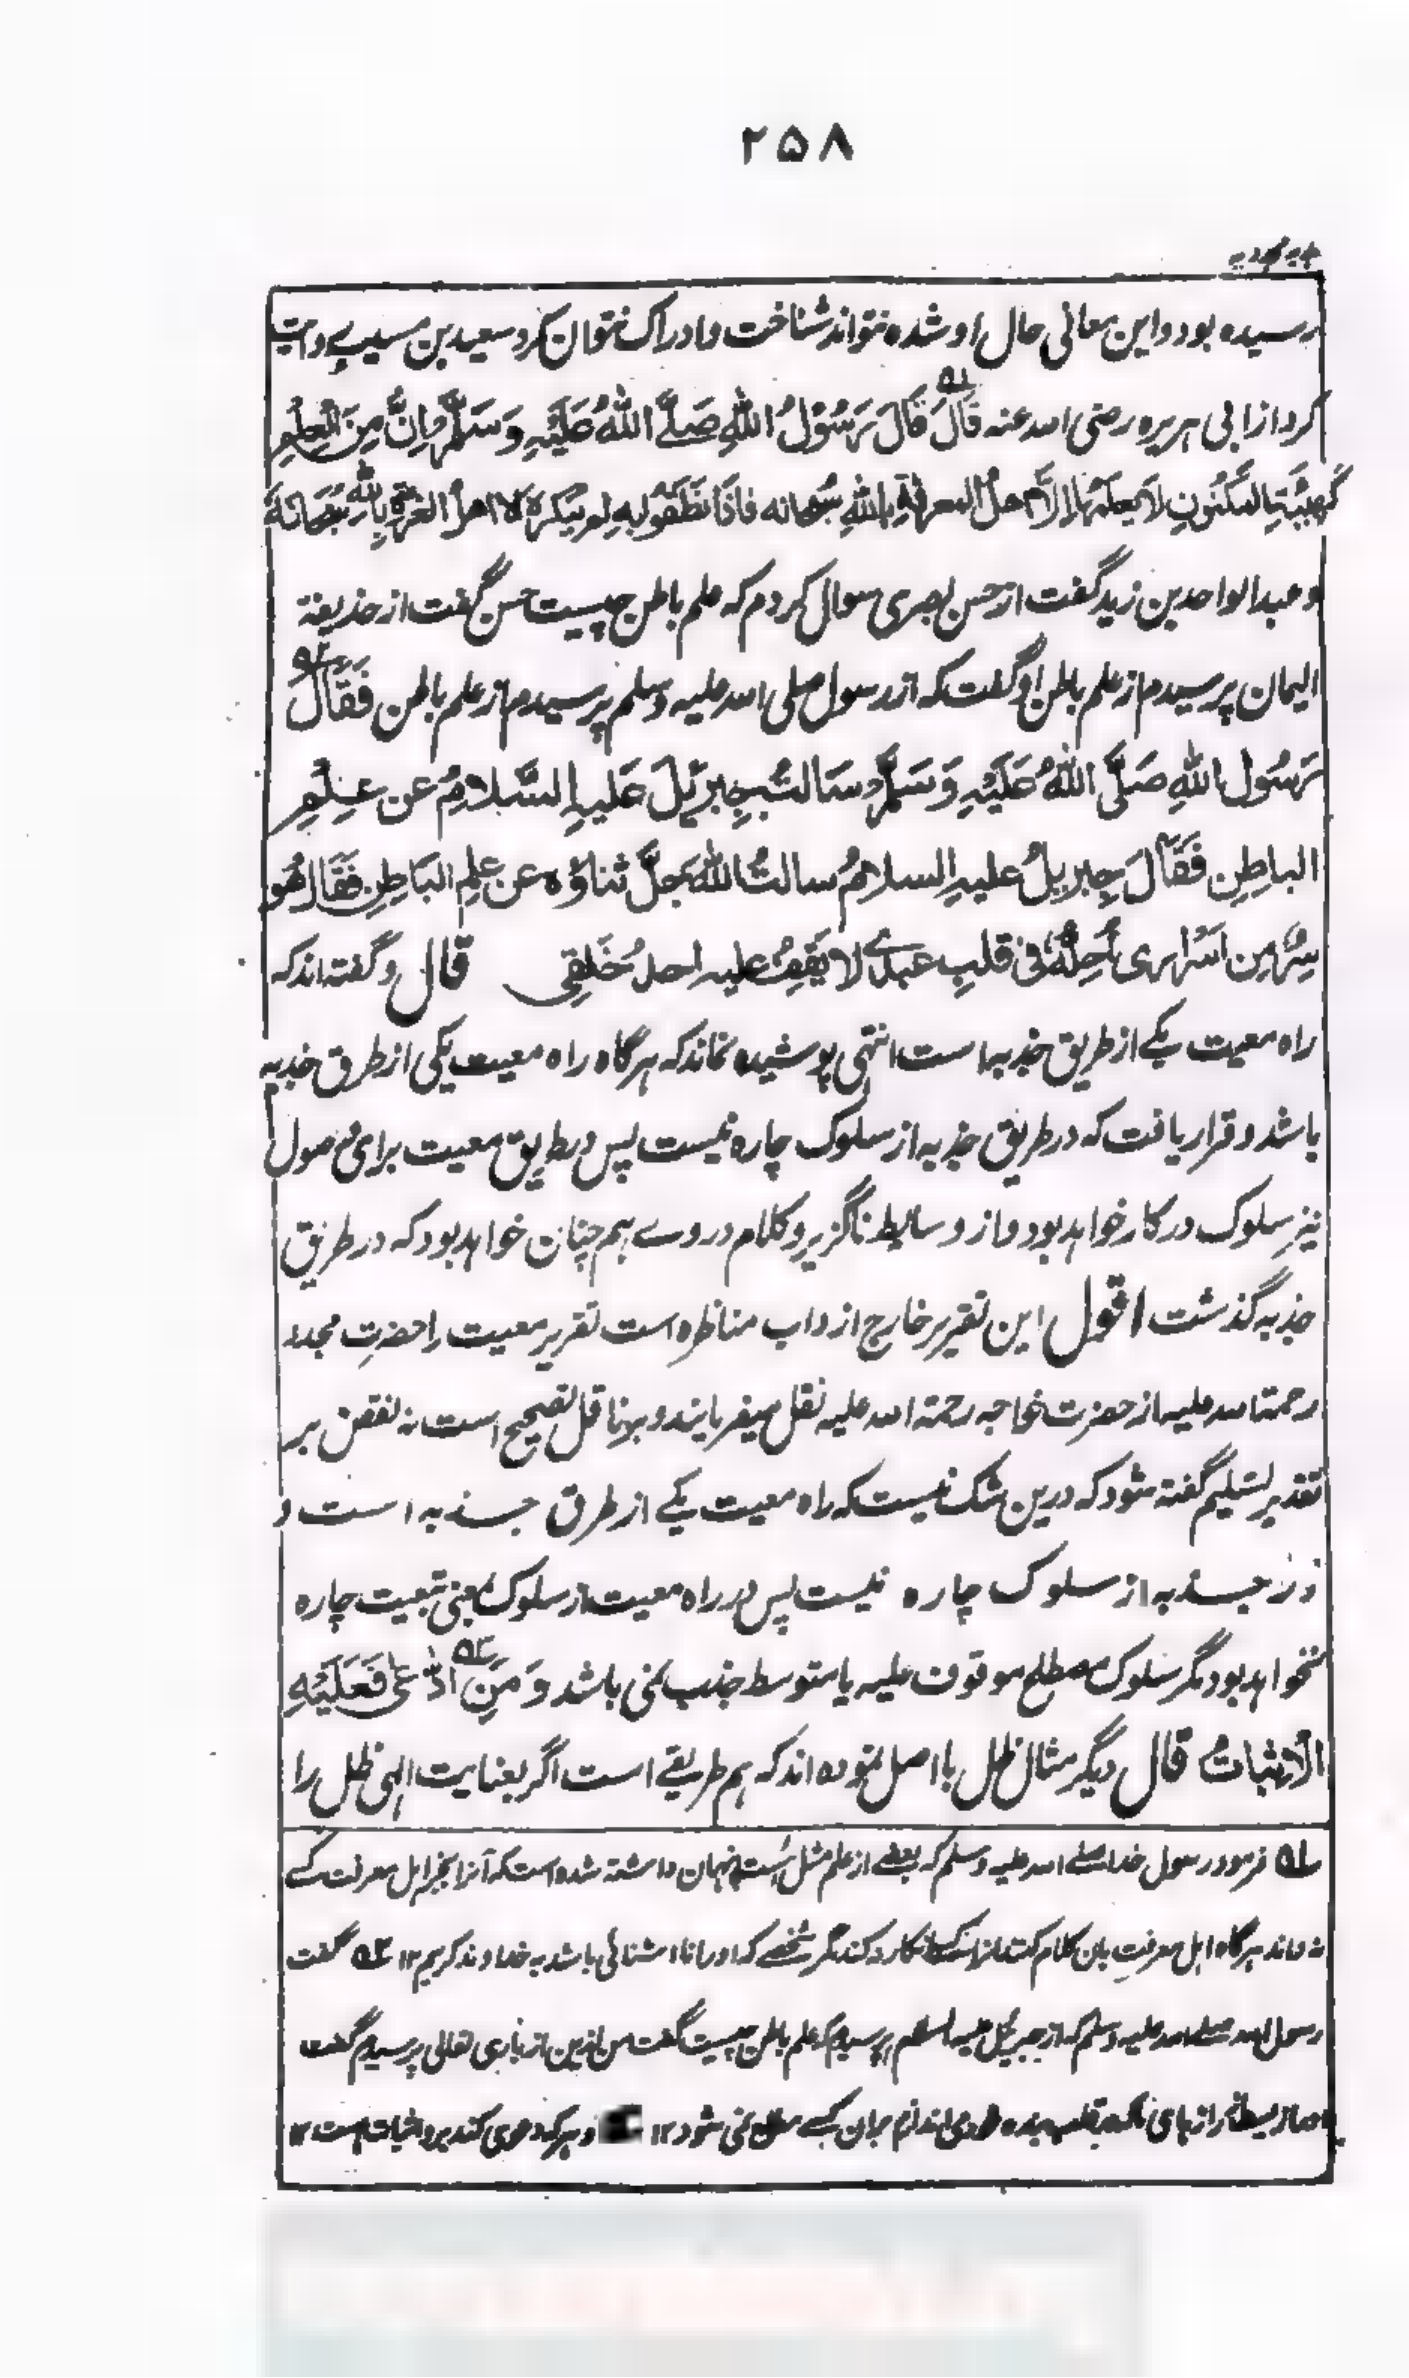 ۲۵۸
رسیده بود و این معانی حال او شده نتواند شناخت و ادراک نتوان کرد سعید بن مسیب روایت
کرد از ابی هریره رضی الله عنه قَالَ قَالَ رَسُوْلُ اللهِ صَلَّے اللهُ عَلَيْهِ وَسَلَّمَ اِنَّ مِنَ الْعِلْمِ
كَهَيْئَةِ المَكْنُونِ لَا يَعلَمُهَا اِلَّا اَهلُ المعرفةِ بِاللهِ سُبحانه فاذَا نَطَقُوْا بِهِ لم يُنكِرهُ الا اهلُ الغرة بِاللهِ سُبحَانَهُ
و عبدالواحد بن زید گفت از حسن بصری سوال کردم که علم باطن چیست حسن گفت از حذیفة
الیمان پرسیدم از علم باطن او گفت که از رسول صلی الله علیه وسلم پرسیدم از علم باطن فَقَالَ
رَسُول اللهِ صَلَّی اللهُ عَلَيْهِ وَسَلَّمَ سَالتُ جِبرَئِيلَ عَلَيهِ السَّلَامُ عن عِلمِ
الباطِنِ فَقَالَ جِبریلُ علیهِ السلامُ سالتُ اللهَ جَلَّ ثناؤه عن عِلمِ البَاطِنِ فَقَالَ هُو
سِرٌّ مِن اَسْرَاری اَجعَلُهٗ فی قلبِ عبدے لا یَقِفُ علیه احدٌ خَلقِی قال و گفته اند که
راه معیت یکے از طریق جذبه است انتهی پوشیده نماند که هرگاه راه معیت یکی از طرق جذبه
باشد و قرار یافت که در طریق جذبه از سلوک چاره نیست پس در طریق معیت برای وصول
نیز سلوک در کار خواهد بود و از وسایط ناگزیر و کلام در وے هم چنان خواهد بود که در طریق
جذبه گذشت اقول این تقریر خارج از داب مناظره است تقریر معیت را حضرتِ مجدد
رحمة الله علیه از حضرت خواجه رحمة الله علیه نقل میفرمایند و برناقل تصحیح است نه نقض بر
تقدیر تسلیم گفته شود که درین شک نیست که راه معیت یکے از طرق جذبه است و
در جذبه از سلوک چاره نیست پس در راه معیت از سلوک بمعنی تبعیت چاره
نخواهد بود مگر سلوک مصطلح موقوف علیه یا متوسط جذب نمی باشد وَمَنِ ادَّعٰی فَعَلَيْهِ
الْاِثبَاتُ قال دیگر مثال ظل با اصل نموده اند که هم طریقے است اگر بعنایت الهی ظل را
۵۱ فرمود رسول خدا صلے الله علیه وسلم که بعضے از علم مثل پنهان داشته شده است که آنرا بجز اهل معرفت کسے
نداند هرگاه اهل معرفتِ بان کلام کنند انکار نکند مگر شخصے که او را نا اشنائی باشد به خداوند کریم ۱۲ ۵۲ گفت
رسول الله صلے الله علیه وسلم که از جبرئیل علیه السلام پرسیدم که علم باطن چیست گفت من ازین از باری تعالی پرسیدم گفت
بران کسے مطلع نمی شود ۱۲ و هر که دعوی کند بر و اثبات است ۱۲